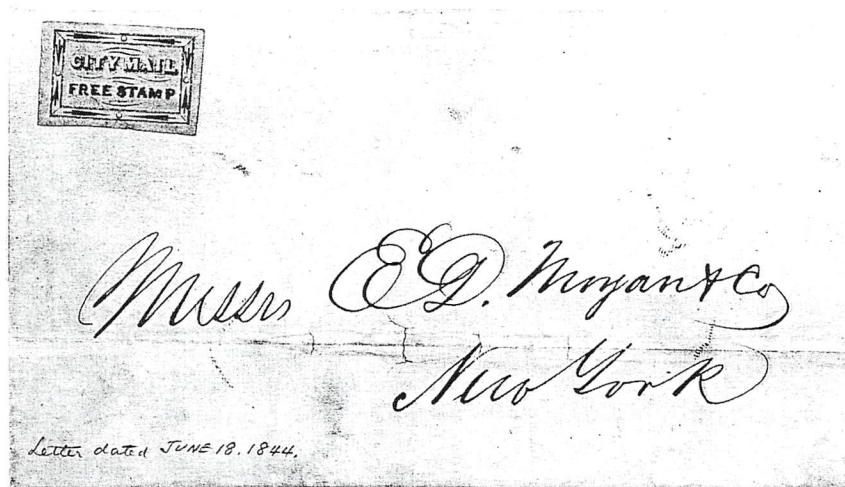 CITY MAIL
FREE STAMP
Messrs E.D. Morgan & Co
New York
Letter dated JUNE 18. 1844.